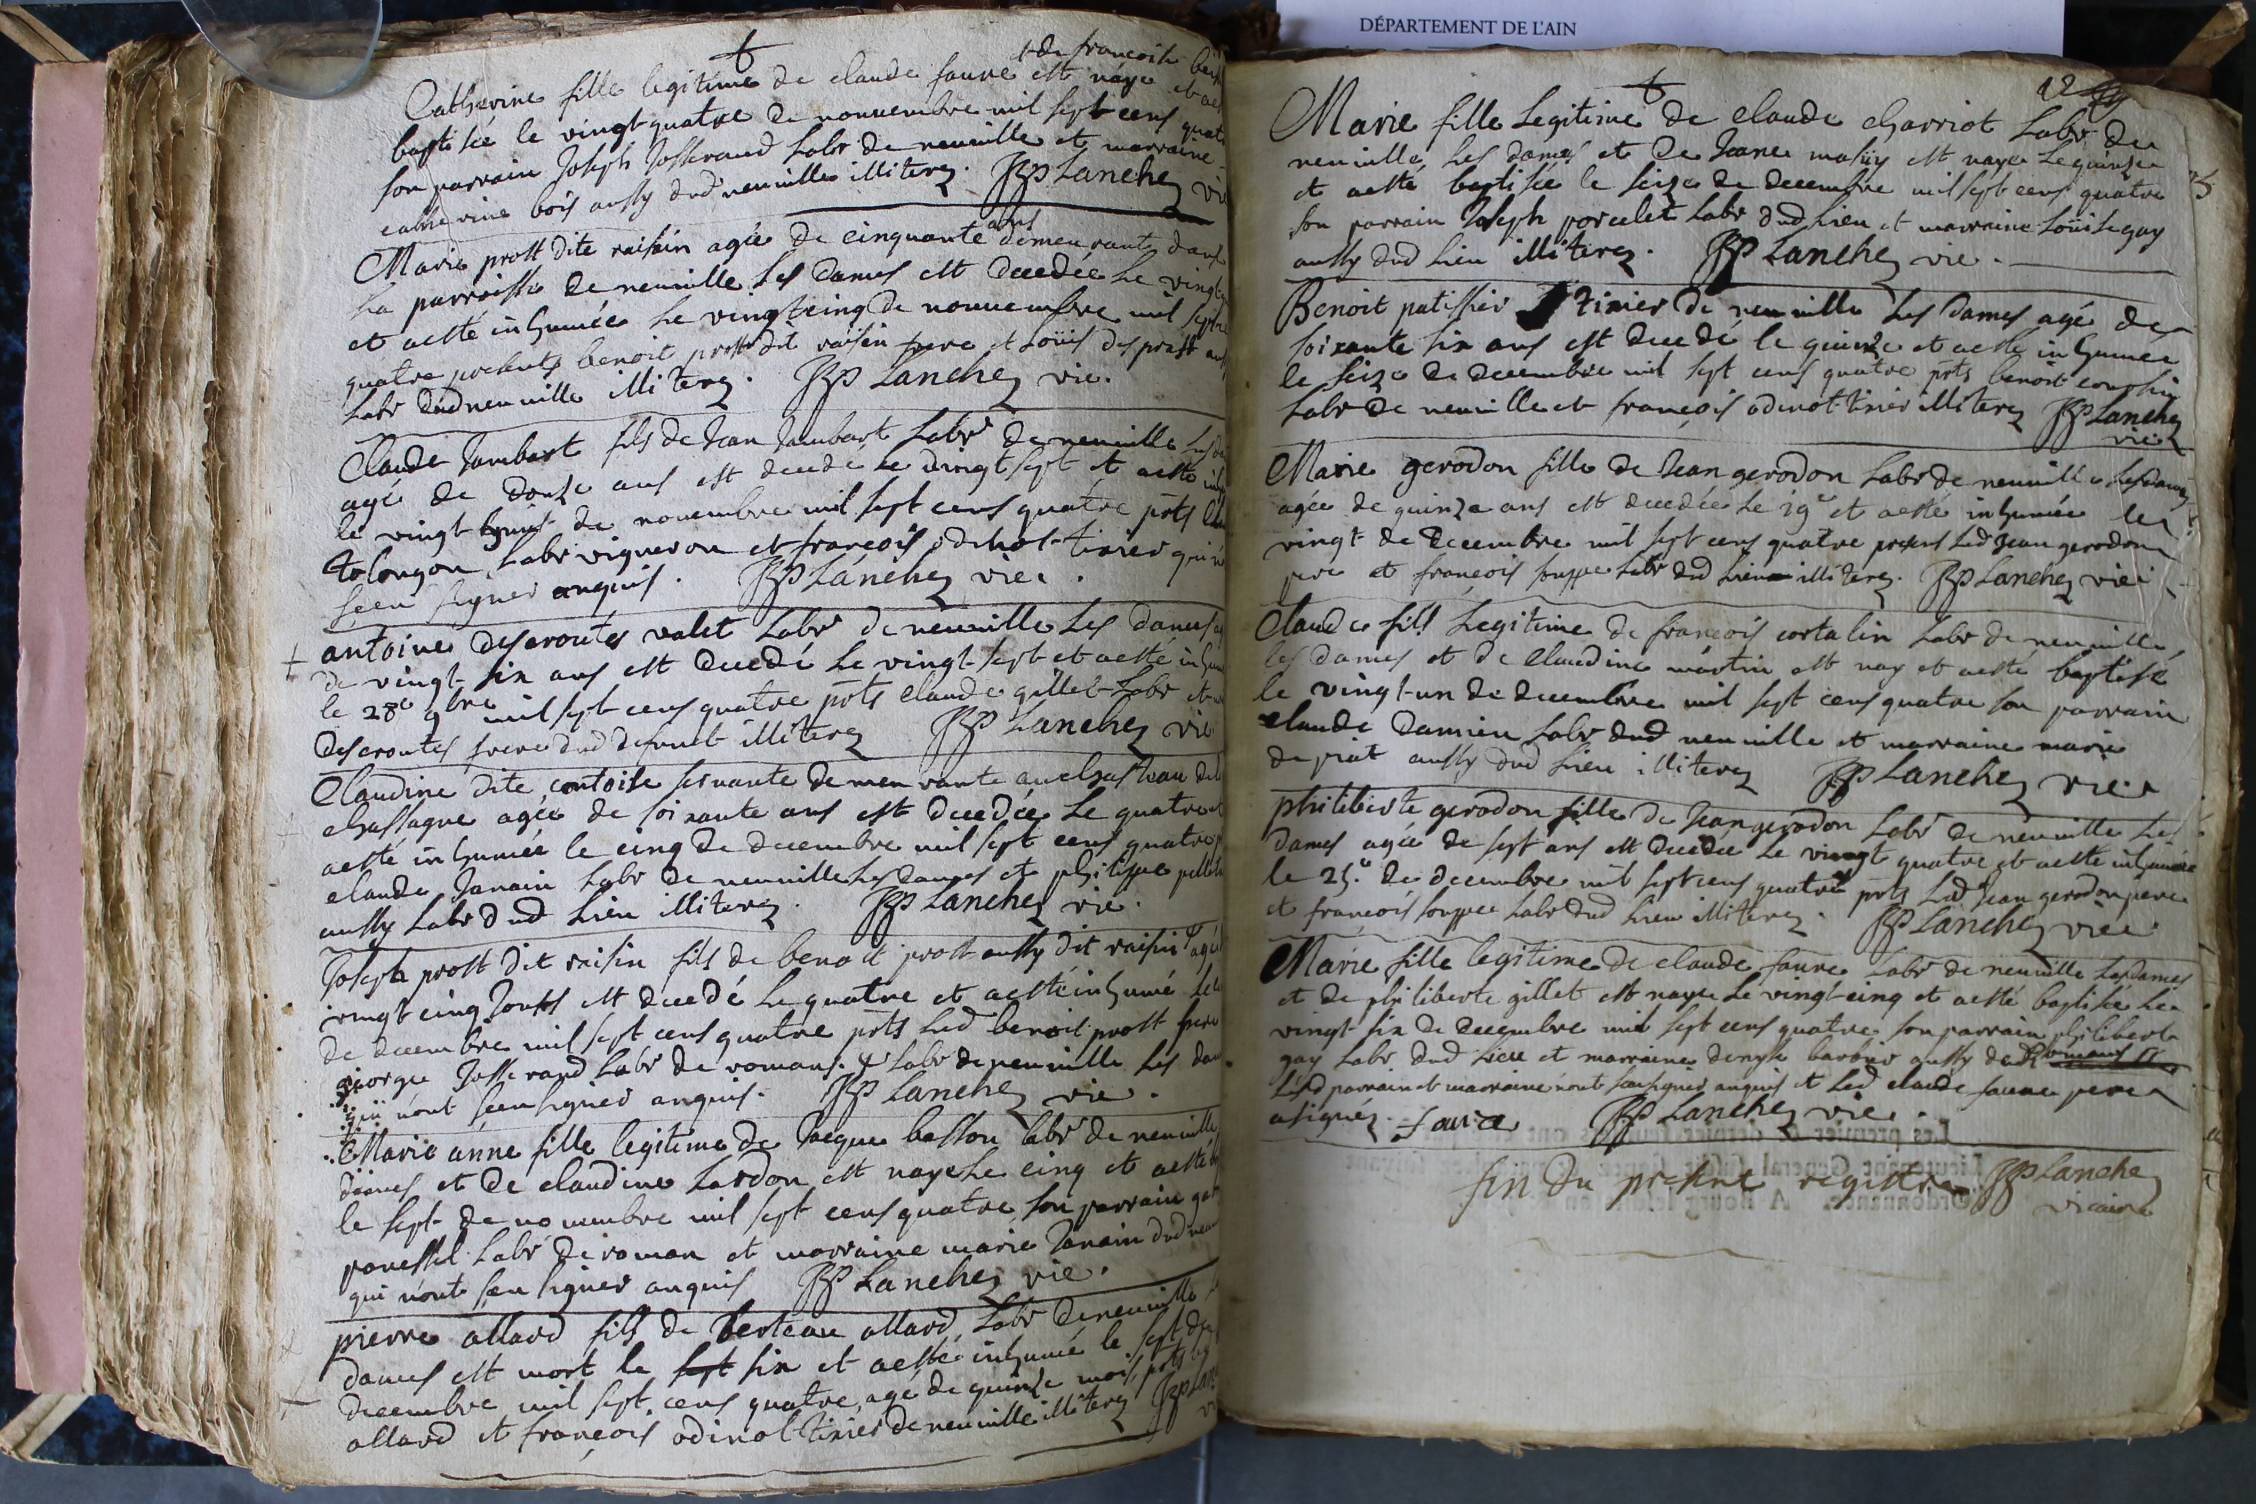 DÉPARTEMENT DE L'AIN
Catherine fille legitime de claude faure et de francoise
est naye et a esté
baptisée le vingt quatre de nouuembre mil sept cens quatre
son parrain Joseph Josserand Labr de neuuille et marraine
catherine bois aussy dud neuuille illiterez. JBP Lanchez vic
Marie prost dite raisin agée de cinquante ans demeurante dans
La parroisse de neuuille Les Dames est decedée Le vingt
et a esté inhumée Le vingt cinq de nouuembre mil sept cens
quatre presents benoit prost dit raisin frere et Loüis desprast
Labr dud neuuille illiterez. JBP Lanchez vic.
Claude Jambart fils de Jean Jambart Labr de neuuille Les
agé de douze ans est decedé Le vingt sept et a esté
le vingt huit de nouembre mil sept cens quatre pñts
tolongon Labr vigneron et françois odinot tixier qui n
sceu signer enquis. JBP Lanchez vic.
antoine descroutes valet Labr de neuuille Les Dames
de vingt six ans est decedé Le vingt sept et a esté inhumé
le 28e 9bre mil sept cens quatre pñts claude gillet Labr et
descroutes frere dud defunct illiterez JBP Lanchez vic
Claudine dite contoise seruante demeurante au chasteau de
chassagne agée de soixante ans est decedée Le quatre et
a esté inhumée le cinq de decembre mil sept cens quatre
claude Janain Labr de neuuille Les Dames et philippe
aussy Labr dud Lieu illiterez. JBP Lanchez vic.
Joseph prost dit raisin fils de benoit prost aussy dit raisin agé
vingt cinq Jours est decedé Le quatre et a esté inhumé le
de decembre mil sept cens quatre pñts Led benoit prost
george Josserand Labr de romans. Labr de neuuille Les
qui n'ont sceu signer enquis. JBP Lanchez vic.
Marie anne fille legitime de Jacque baston labr de neuuille
dames et de claudine Lardon est naye Le cinq et a esté
le sept de nouembre mil sept cens quatre son parrain
Labr de roman et marraine marie Janain dud
qui n'ont sceu signer enquis JBP Lanchez vic.
pierre allard fils de berteau allard Labr de neuuille
dames est mort le sept six et a esté inhumé le sept de
decembre mil sept cens quatre, agé de quinze mois, pñts
allard et françois odinot tixier de neuuille illiterez JBP
Marie fille Legitime de claude charriot Labr de
neuuille Les dames et de Jeane est naye Le quinze
et a esté baptisée le seize de decembre mil sept cens quatre
son parrain Joseph porcelet Labr dud Lieu et marraine Loüise gay
aussy dud Lieu illiterez. JBP Lanchez vic.
Benoit patissier tixier de neuuille Les Dames agé de
soixante six ans est decedé le quinze et a esté inhumée
le seize de decembre mil sept cens quatre pñts benoit
Labr de neuuille et françois odinot tixier illiterez JBP Lanchez
vic
Marie gerodon fille de Jean gerodon Labr de neuuille Les dames
agée de quinze ans est decedée Le 19e et a esté inhumée le
vingt de decembre mil sept cens quatre presens Led Jean gerodon
pere et françois souppe Labr dud Lieu illiterez. JBP Lanchez vic.
Claude fils Legitime de françois cortalin Labr de neuuille
les Dames et de Claudine martin est nay et a esté baptisé
le vingt un de decembre mil sept cens quatre son parrain
claude Damien Labr dud neuuille et marraine marie
du prat aussy dud Lieu illiterez JBP Lanchez vic.
philiberte gerodon fille de Jean gerodon Labr de neuuille Les
dames agée de sept ans est decedée Le vingt quatre et a esté inhumée
le 25.e de decembre mil sept cens quatre pñts Led Jean gerodon pere
et françois souppe Labr dud Lieu illiterez. JBP Lanchez vic.
Marie fille legitime de claude faure Labr de neuuille Les dames
et de philiberte gillet est naye Le vingt cinq et a esté baptisée Le
vingt six de decembre mil sept cens quatre son parrain philibert
gay Labr dud Lieu et marraine denyse barbier aussy de Romans
Lesd parrain et marraine n'ont sceu signer enquis et Led claude faure pere
a signé. faure JBP Lanchez vic.
fin du present registre JBP Lanchez
vicaire